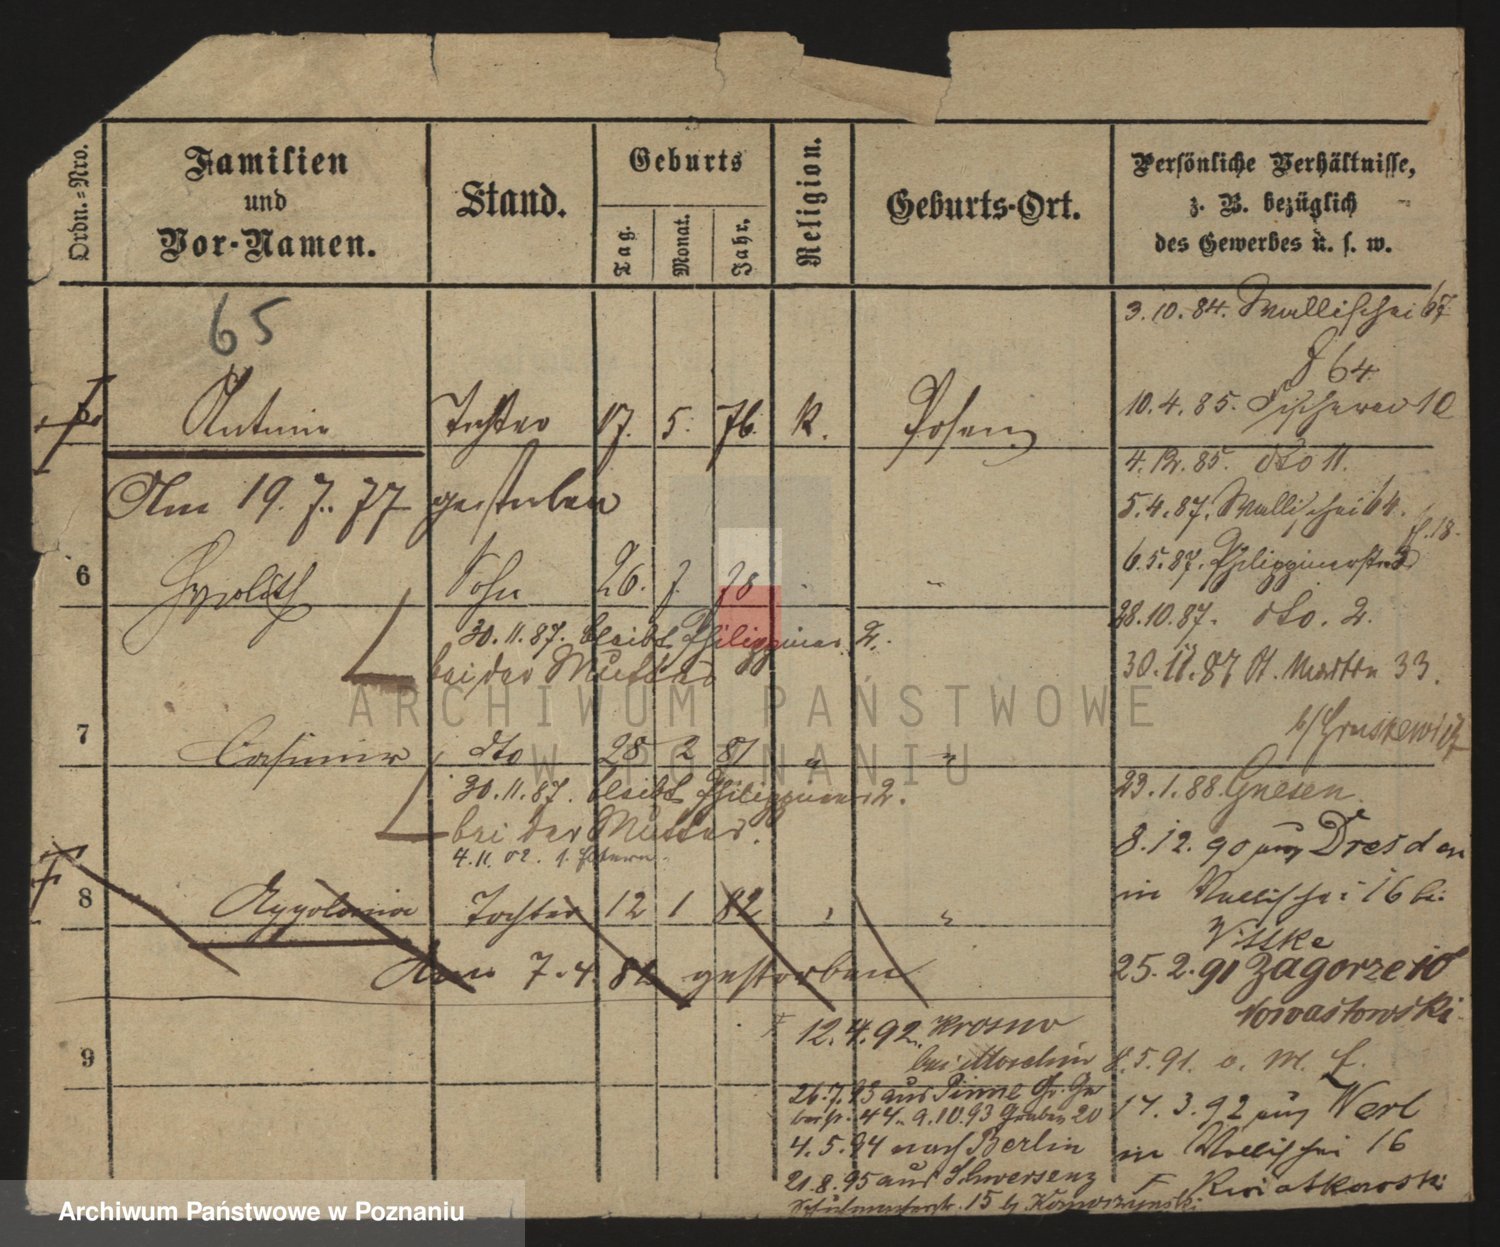 Ordn.=Nro.
Familien
und
Vor-Namen.
Stand.
Geburts
Tag.
Monat.
Jahr.
Religion.
Geburts-Ort.
Persönliche Verhältnisse,
z. B. bezüglich
des Gewerbes u. s. w.
65
3.10.84. Wallischei 67
64
10.4.85. Fischerei 10
Antonie Tochter 17. 5. 76. K. Posen
4.12.85. dto 11.
Am 19.7.77 gestorben
5.4.87. Wallischei 64.
6.5.87. Philippinerstr
6 Hypolith Sohn 26. 7. 78 "
28.10.87. dto. 2.
30.11.87. bleibt Philippiner 2.
bei der Mutter
30.11.87 St. Martin 33.
b/Gruskewicz
7 Casimir dto 28 2 81 " "
30.11.87. bleibt Philippiner 2.
bei der Mutter.
4.11.02. Eltern.
23.1.88. Gnesen
8.12.90 aus Dresden
in Wallischei 16 bei
Wittke
8 Appolonia Tochter 12 1 82 " "
Am 7.4.82 gestorben
25.2.91 Zagorze 10
Nowastowski
9
12.4.92. Krosno
bei Moschin
8.5.91. o. M. f.
26.7.93 aus Pinne
44. 9.10.93 Graben 20
17.3.92 aus Werl
in Wallischei 16
Kwiatkowski
4.5.94 nach Berlin
21.8.95 aus Schwersenz
15 b. Komorzynski
ARCHIWUM PAŃSTWOWE
W POZNANIU
Archiwum Państwowe w Poznaniu